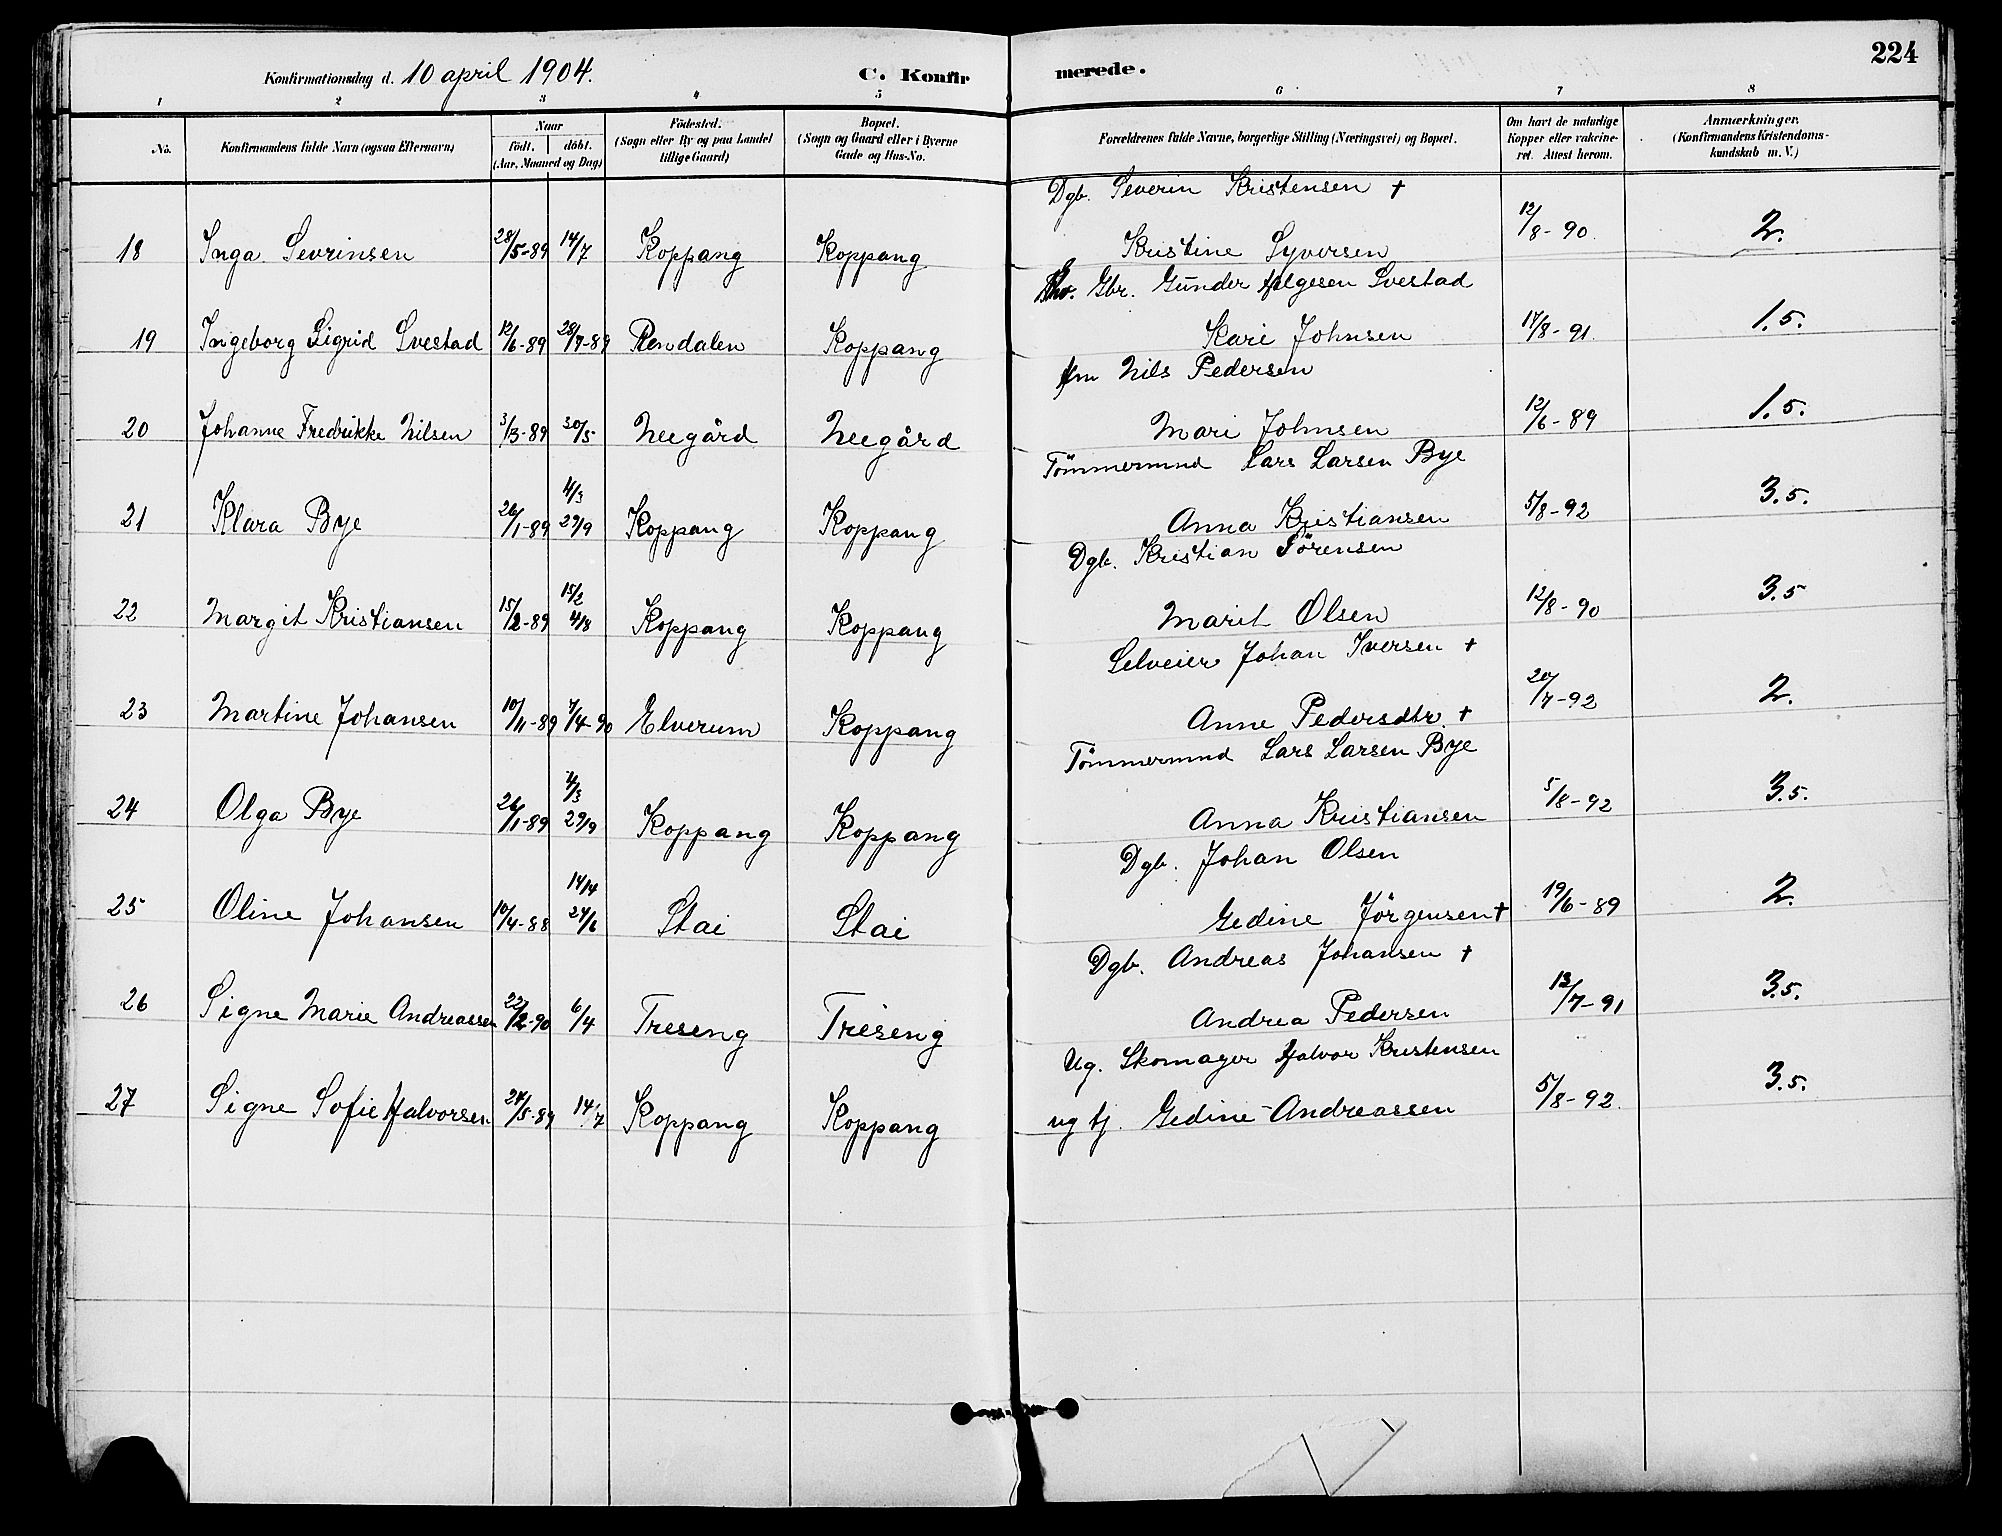 Konfirmationsdag d. 10 april 1904. C. Konfirmerede. 224
1 2 3 4 5 6 7 8
No. Konfirmandens fulde Navn (ogsaa Efternavn) Naar födt. döbt. (Aar, Maaned og Dag) Födested. (Sogn eller By og paa Landet tillige Gaard) Bopæl. (Sogn og Gaard eller i Byerne Gade og Hus-No. Forældrenes fulde Navne, borgerlige Stilling (Næringsvei) og Bopæl. Om havt de naturlige Kopper eller vakcineret. Attest herom. Anmærkninger. (Konfirmandens Kristendomskundskab m. V.)
Dgb. Severin Kristensen †
18 Inga Sevrinsen 28/5-89 14/7 Koppang Koppang Kristine Syversen 12/8-90. 2.
Gbr. Gunder Helgesen Svestad
19 Ingeborg Sigrid Svestad 12/6-89 28/7-89 Rendalen Koppang Kari Johnsen 17/8-91. 1.5.
Hm Nils Pedersen
20 Johanne Fredrikke Nilsen 3/3-89 30/5 Neegård Neegård Mari Johnsen 12/6-89 1.5.
Tömmermnd Lars Larsen Bye
21 Klara Bye 26/1-89 4/3 29/9 Koppang Koppang Anna Kristiansen 5/8-92 3.5.
Dgb. Kristian Sörensen
22 Margit Kristiansen 15/2-89 15/2 4/8 Koppang Koppang Marit Olsen 12/8-90 3.5
Selveier Johan Iversen †
23 Martine Johansen 10/11-89 7/4-90 Elverum Koppang Anne Pedersdtr. † 20/7-92 2.
Tömmermnd Lars Larsen Bye
24 Olga Bye 26/1-89 4/3 29/9 Koppang Koppang Anna Kristiansen 5/8-92 3.5.
Dgb. Johan Olsen
25 Oline Johansen 10/4-88 14/14 24/6 Stai Stai Gedine Jörgensen † 19/6-89 2.
Dgb. Andreas Johansen †
26 Signe Marie Andreassen 22/2-90 6/4 Treseng Treseng Andrea Pedersen 13/7-91 3.5.
Ug. Skomager Halvor Kristensen
27 Signe Sofie Halvorsen 24/5-89 14/7 Koppang Koppang ug tj. Gedine Andreassen 5/8-92. 3.5.